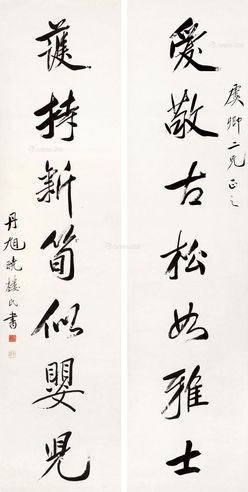 愛敬古松如雅士
虞卿二兄正之
護持新筍似嬰兒
丹旭曉樓氏書